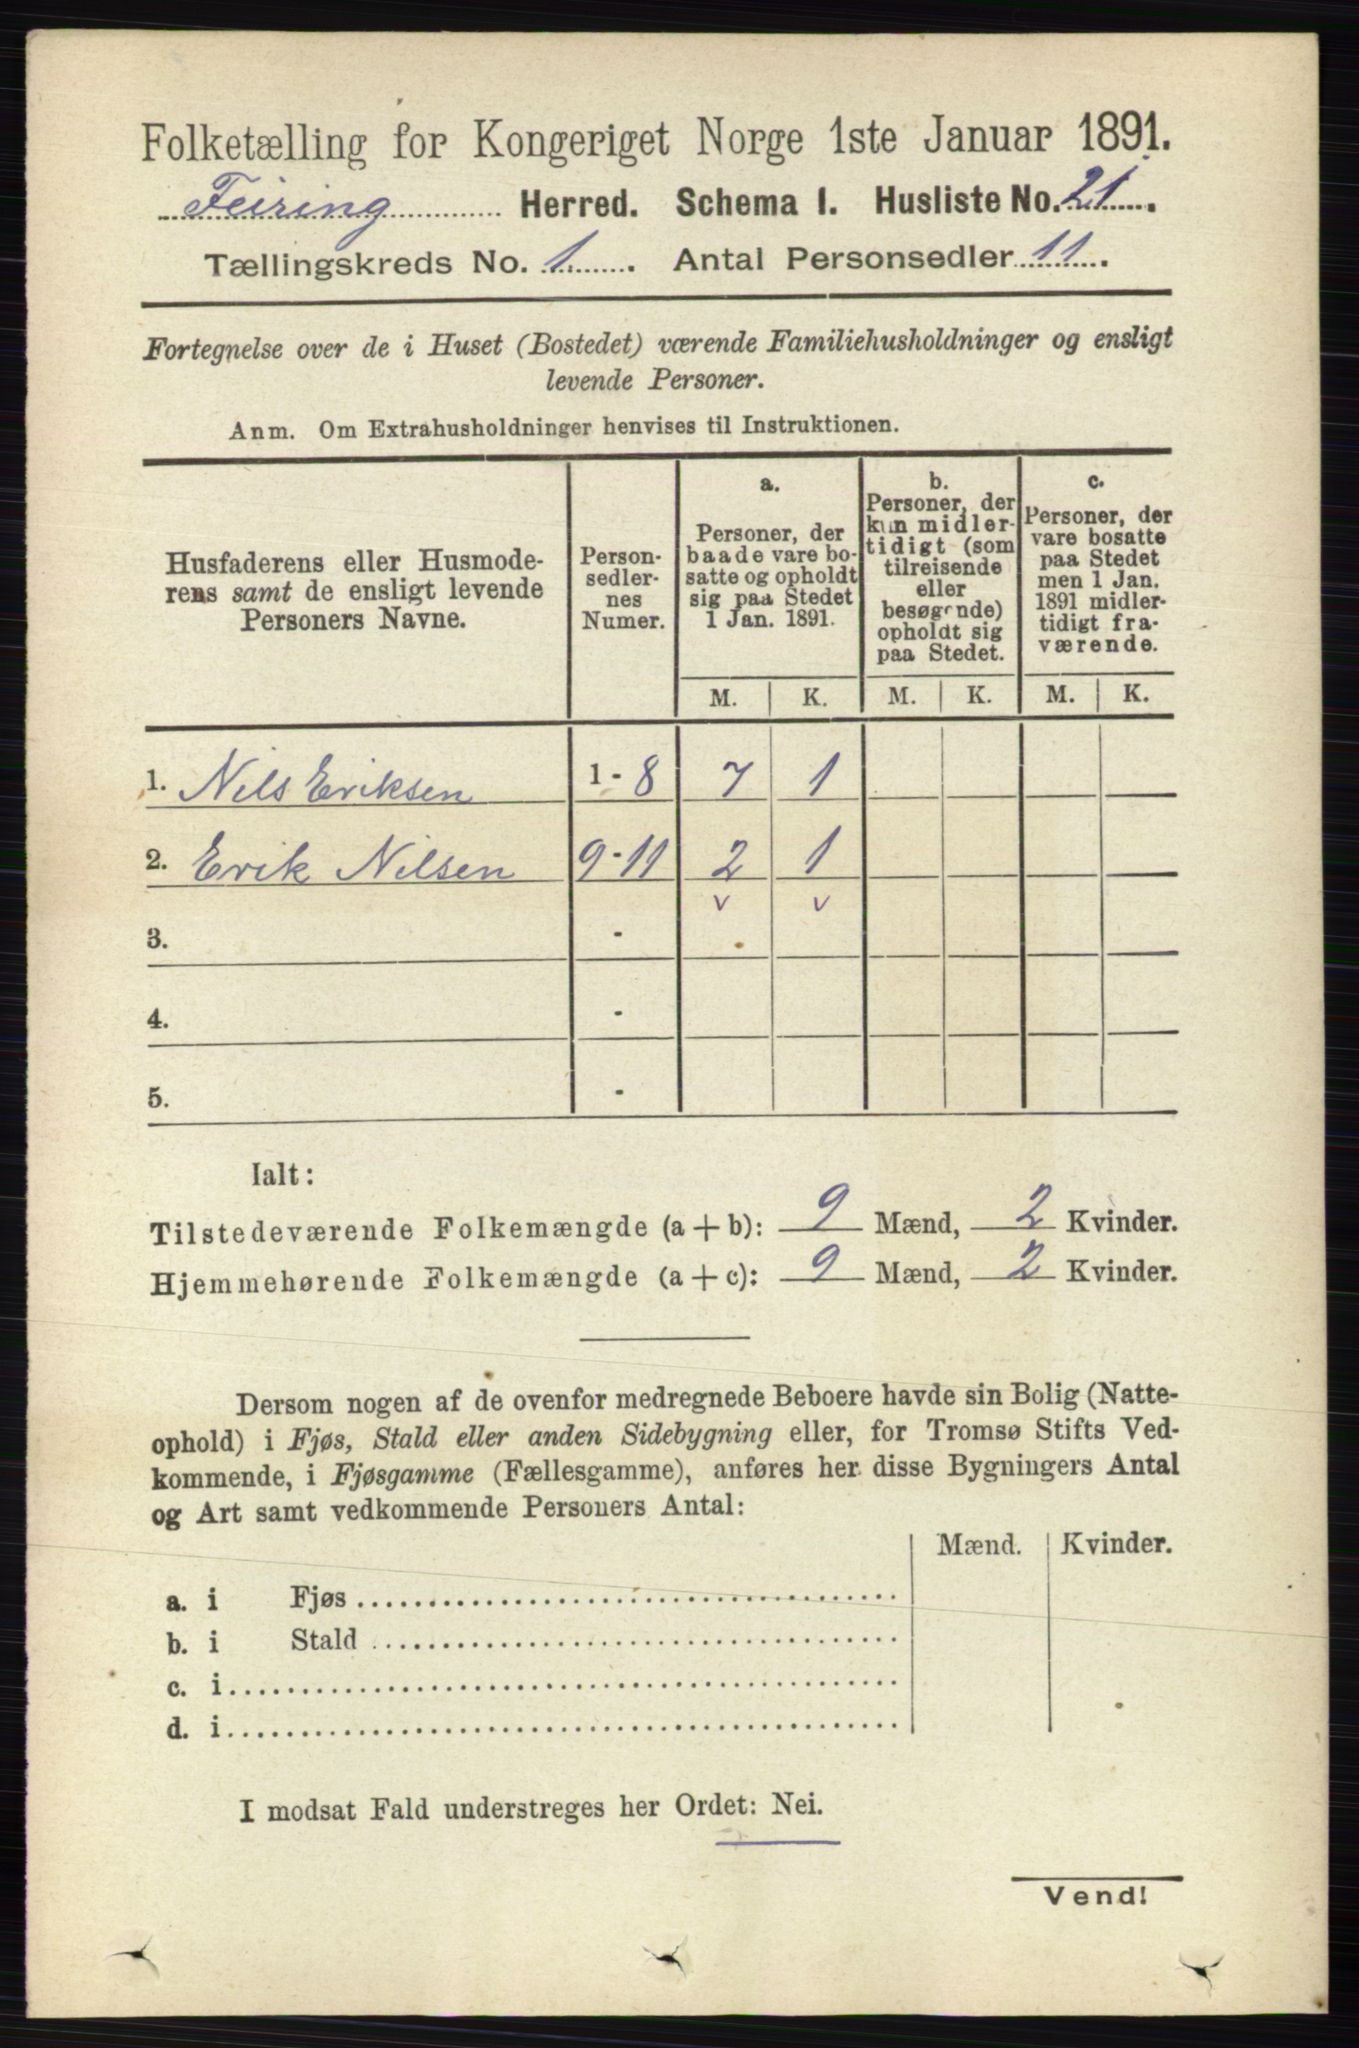 Folketælling for Kongeriget Norge 1ste Januar 1891.
Feiring Herred. Schema I. Husliste No. 21.
Tællingskreds No. 1. Antal Personsedler 11.
Fortegnelse over de i Huset (Bostedet) værende Familiehusholdninger og ensligt
levende Personer.
Anm. Om Extrahusholdninger henvises til Instruktionen.
Husfaderens eller Husmode-
rens samt de ensligt levende
Personers Navne.
Person-
sedler-
nes
Numer.
a.
Personer, der
baade vare bo-
satte og opholdt
sig paa Stedet
1 Jan. 1891.
b.
Personer, der
kun midler-
tidigt (som
tilreisende
eller
besøgende)
opholdt sig
paa Stedet.
c.
Personer, der
vare bosatte
paa Stedet
men 1 Jan.
1891 midler-
tidigt fra-
værende.
M. K. M. K. M. K.
1. Nils Eriksen 1 - 8 7 1
2. Erik Nilsen 9 - 11 2 1
v v
3. -
4. -
5. -
Ialt:
Tilstedeværende Folkemængde (a + b): 9 Mænd, 2 Kvinder.
Hjemmehørende Folkemængde (a + c): 9 Mænd, 2 Kvinder.
Dersom nogen af de ovenfor medregnede Beboere havde sin Bolig (Natte-
ophold) i Fjøs, Stald eller anden Sidebygning eller, for Tromsø Stifts Ved-
kommende, i Fjøsgamme (Fællesgamme), anføres her disse Bygningers Antal
og Art samt vedkommende Personers Antal:
Mænd. Kvinder.
a. i Fjøs
b. i Stald
c. i
d. i
I modsat Fald understreges her Ordet: Nei.
Vend!